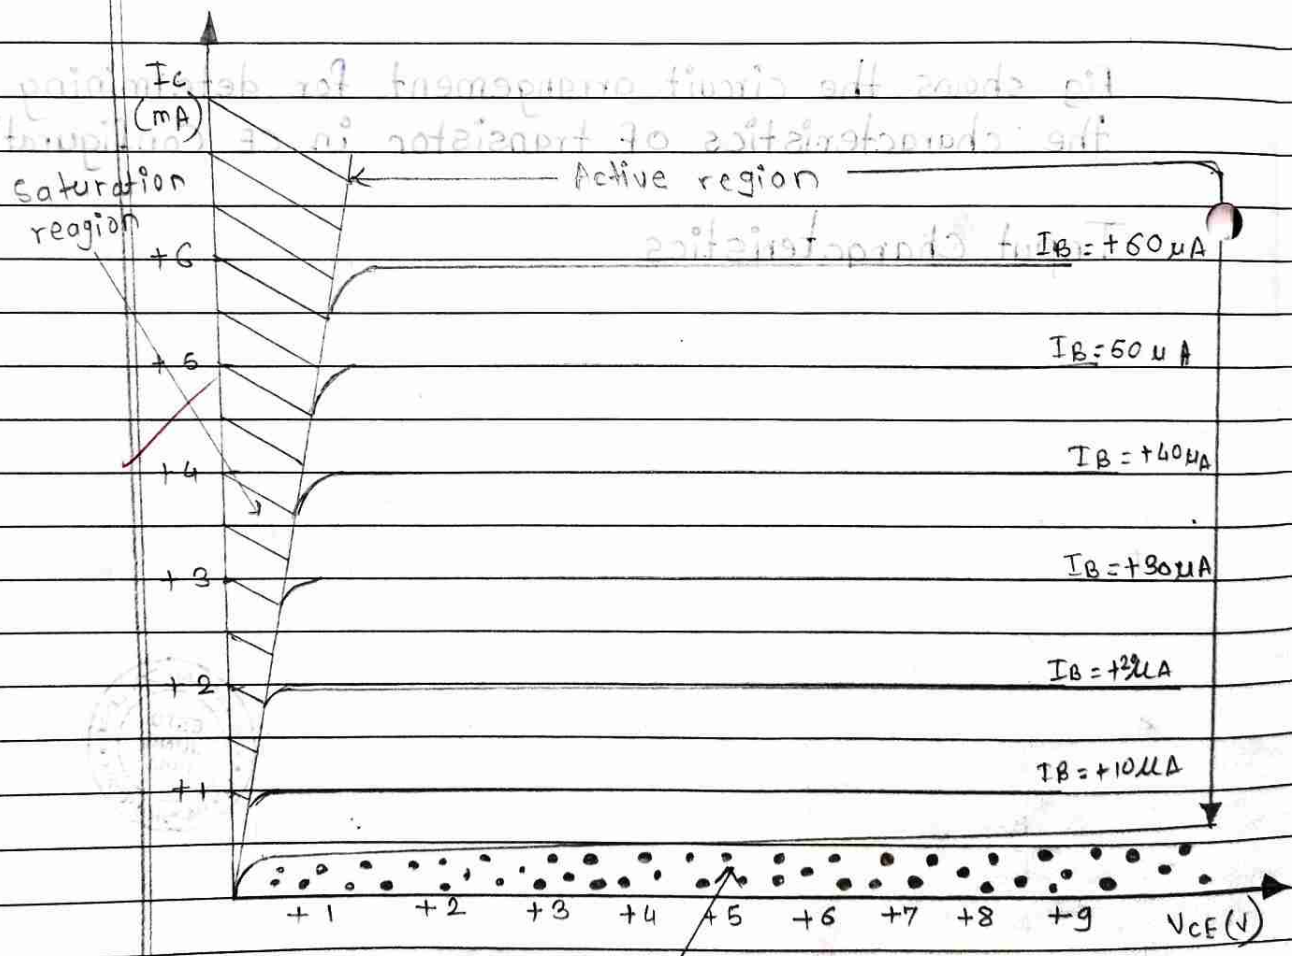 Ic
(mA)
saturation
reagion
Active region
+6
IB=+60μA
+5
IB=50μA
+4
IB=+40μA
+3
IB=+30μA
+2
IB=+20μA
+1
IB=+10μA
+1 +2 +3 +4 +5 +6 +7 +8 +9
VCE(V)